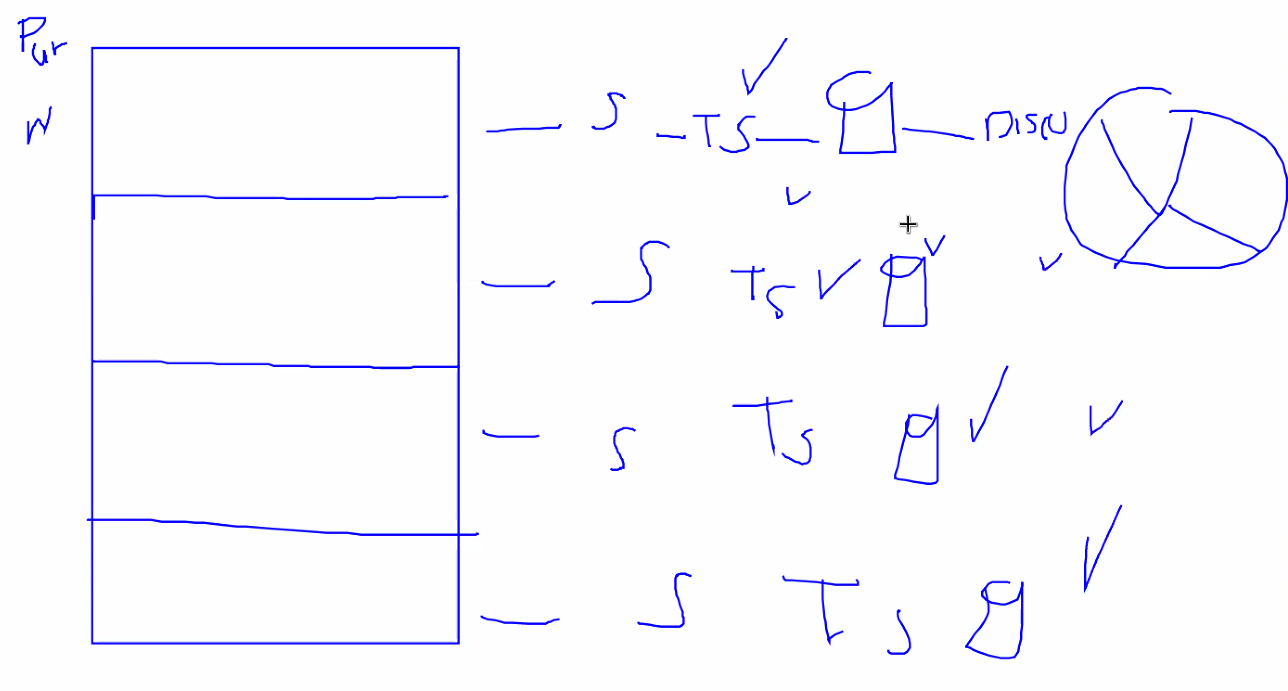 Pur
N
S TS DISCU
S TS
S TS
S TS